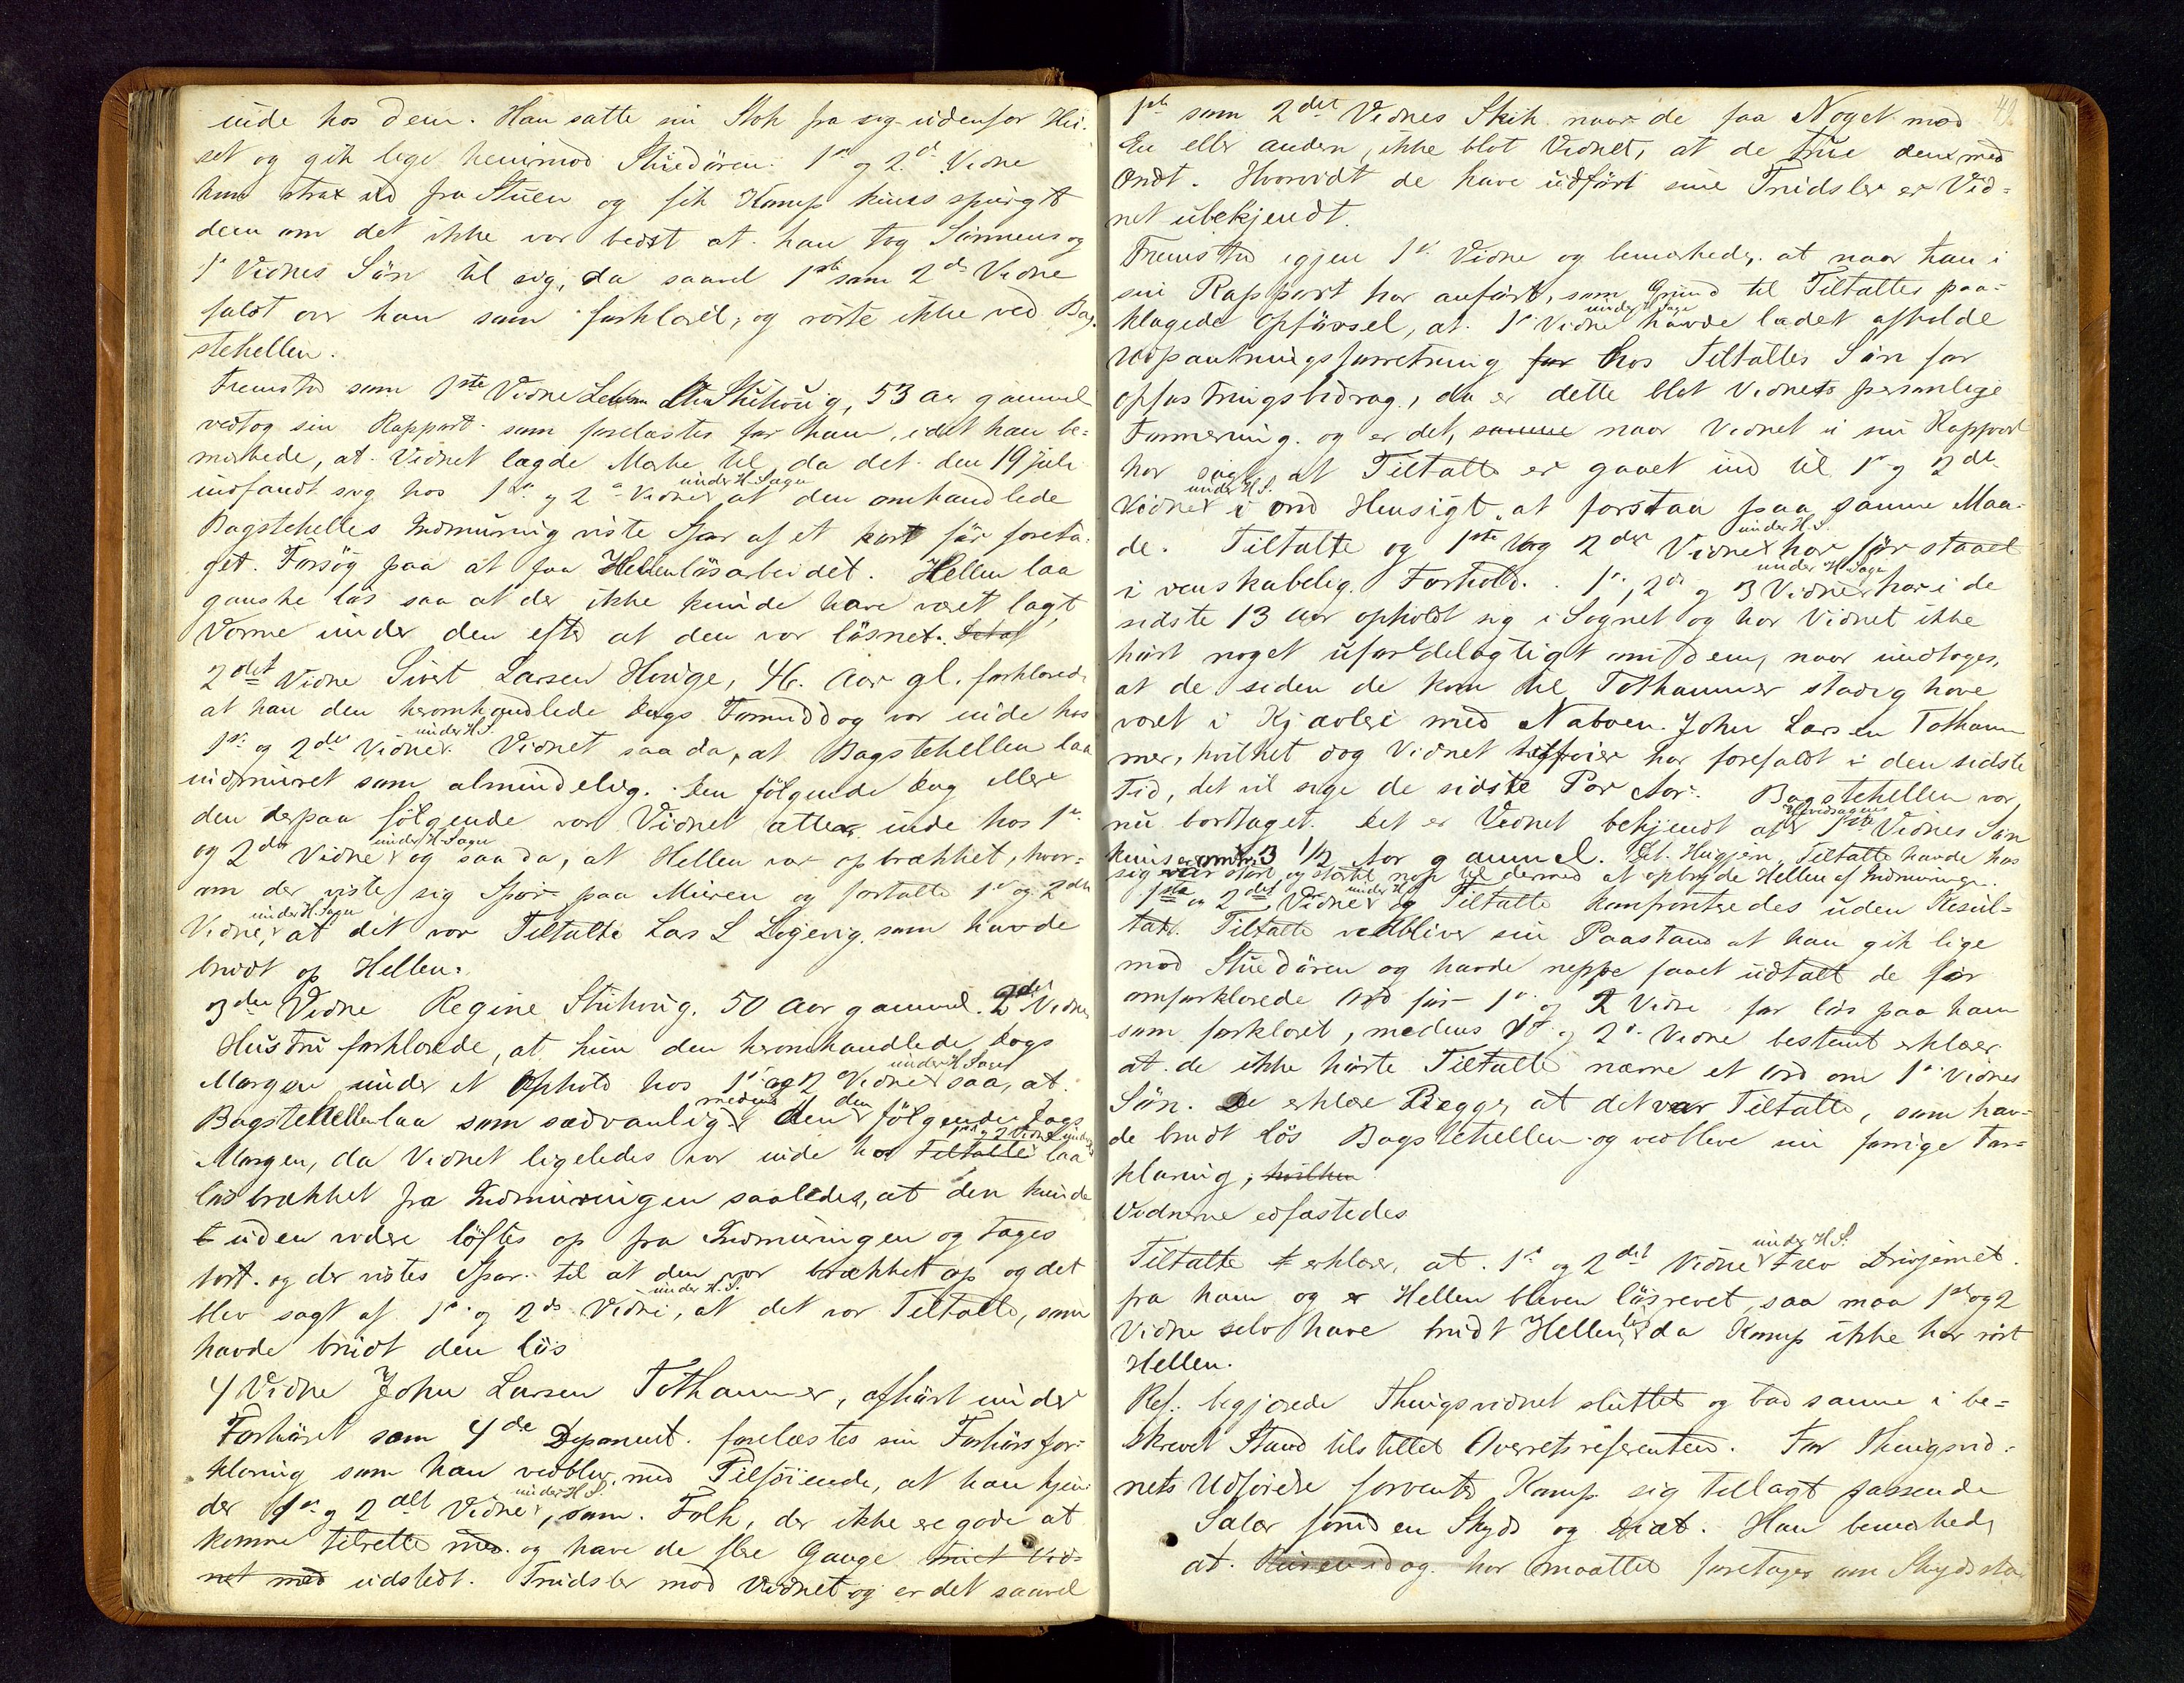 inde hos dem. Han satte sin Stok fra sig udenfor Hu-
set og gik lige henimod Stuedören. 1ste og 2det Vidne
kom strax ud fra Stuen og fik Komp. kuns spurgt
dem om det ikke var bedst at han tog Sönnens og
1ste Vidnes Sön til sig, da saavel 1ste som 2det Vidne
faldt over ham som forklaret, og rörte ikke ved Bag-
stehellen.
Fremstod som 1ste Vidne Lensm. Stuhoug, 53 Aar gammel
vedtog sin Rapport som forelæstes for ham, idet han be-
mærkede, at Vidnet lagde Mærke til, da det den 19 juli
indfandt sig hos 1ste og 2det Vidne under H. Sagen at den omhandlede
Bagstehelles Indmuring viste Spor af et kort för foreta-
get Forsög paa at faa Hellen lösarbeidet. Hellen laa
ganske lös saa at der ikke kunde have været lagt
Varme under den efter at den var lösnet. Det af
2det Vidne Sivert Larsen Houge, 46 Aar gl. forklarede
at han den heromhandlede Dags Formiddag var inde hos
1ste og 2det Vidne under H. S. Vidnet saa da, at Bagstehellen laa
indmuret som almindelig. Den fölgende Dag eller
den derpaa fölgende var Vidnet atter inde hos 1ste
og 2det Vidne under H. Sagen og saa da, at Hellen var opbrækket, hvor-
om der viste sig Spor paa Muren og fortalte 1ste og 2det
Vidne under H. Sagen, at det var Tiltalte Lars L Logevig som havde
brudt op Hellen.
3die Vidne Regine Stuhoug, 50 Aar gammel. 2det Vidnes
Hustru forklarede, at hun den heromhandlede Dags
Morgen under et Ophold hos 1ste og 2 Vidne under H Sagen saa, at
Bagstehellen laa som sædvanlig medens den den fölgende Dags
Morgen, da Vidnet ligeledes var inde hos Tiltalte 1ste og 2 Vidne under laa
lösbrækket fra Indmuringen saaledes, at den kunde
t uden videre löftes op fra Indmuringen og tages
bort og der vistes Spor til at den var brækket op og det
blev sagt af 1ste og 2det Vidne under H. S., at det var Tiltalte, som
havde brudt den lös
4 Vidne John Larsen Tothammer, afhört under
Forhöret som 4de Deponent. forelæstes sin Forhörsfor-
klaring som han vedblev, med Tilföiende, at han kjen-
der 1ste og 2det Vidne under H S., som Folk, der ikke ere gode at
komme tilrette med og have de flere Gange truet Vid-
net med udstedt Trudsler mod Vidnet og er det saavel
49
1ste som 2det Vidnes Skik naar de faa Noget mod
En eller anden, ikke blot Vidnet, at de true dem med
Ondt. Hvorvidt de have udfört sine Trudsler er Vid-
net ubekjendt.
Fremstod igjen 1ste Vidne og bemærkede, at naar han i
sin Rapport har anfört, som Grund til Tiltaltes paa-
klagede Opförsel, at 1ste Vidne under H Sagen havde ladet afholde
Udpantningsforretning for hos Tiltaltes Sön for
opfostringsbidrag, da er dette blot Vidnets personlige
Formening og er det, samme naar Vidnet i sin Rapport
har sagt, at Tiltalte er gaaet ind til 1ste og 2det
Vidne under H S. i ond Hensigt, at forstaa paa samme Maa-
de. Tiltalte og 1ste og 2det Vidne under H. S. har för staaet
i venskabelig Forhold. 1ste, 2det og 3 Vidne under H Sagen har i de
sidste 13 Aar opholdt sig i Sognet og har Vidnet ikke
hört noget ufordelagtigt om dem, naar undtages,
at de siden de kom til Tothammer stadig have
været i Kjævleri med Naboen John Larsen Totham-
mer, hvilket dog Vidnet tilföier har forefaldt i den sidste
Tid, det vil sige de sidste Par Aar. Bagstehellen var
nu borttaget. Det er Vidnet bekjendt at 1ste Vidnes Sön
kuns er omtr. 3 1/2 Aar gammel. Det Hugjern, Tiltalte havde hos
sig var stort og stærkt nok til dermed at opbryde Hellen af Indmuringen.
1ste og 2det Vidne under H S. og Tiltalte konfronteredes uden Resul-
tat. Tiltalte vedbliver sin Paastand at han gik lige
mod Stuedören og havde neppe faaet udtalt de för
omforklarede Ord för 1ste og 2 Vidne for lös paa ham
som forklaret, medens 1ste og 2det Vidne bestemt erklærer
at de ikke hörte Tiltalte nævne et Ord om 1ste Vidnes
Sön. De erklære Begge, at det var Tiltalte, som hav-
de brudt lös Bagstehellen og vedbleve sin forrige For-
klaring, hvilken
Vidnerne edfæstedes
Tiltalte t erklærer, at 1ste og 2det Vidne under H. S. rev Drivjernet
fra ham og er Hellen bleven lösrevet, saa maa 1ste og 2
Vidne selv have brudt Hellen lös da Komp. ikke har rört
Hellen.
Ref. begjærede Thingsvidnet sluttet og bad samme i be-
skrevet Stand tilstillet Overretsreferenten. For Thingsvid-
nets Udförelse forventer Komp. sig tillagt passende
Salær samt en Skyds og Diæt. Han bemærkede
at Reisen idag har maattet foretages om Skydssta-